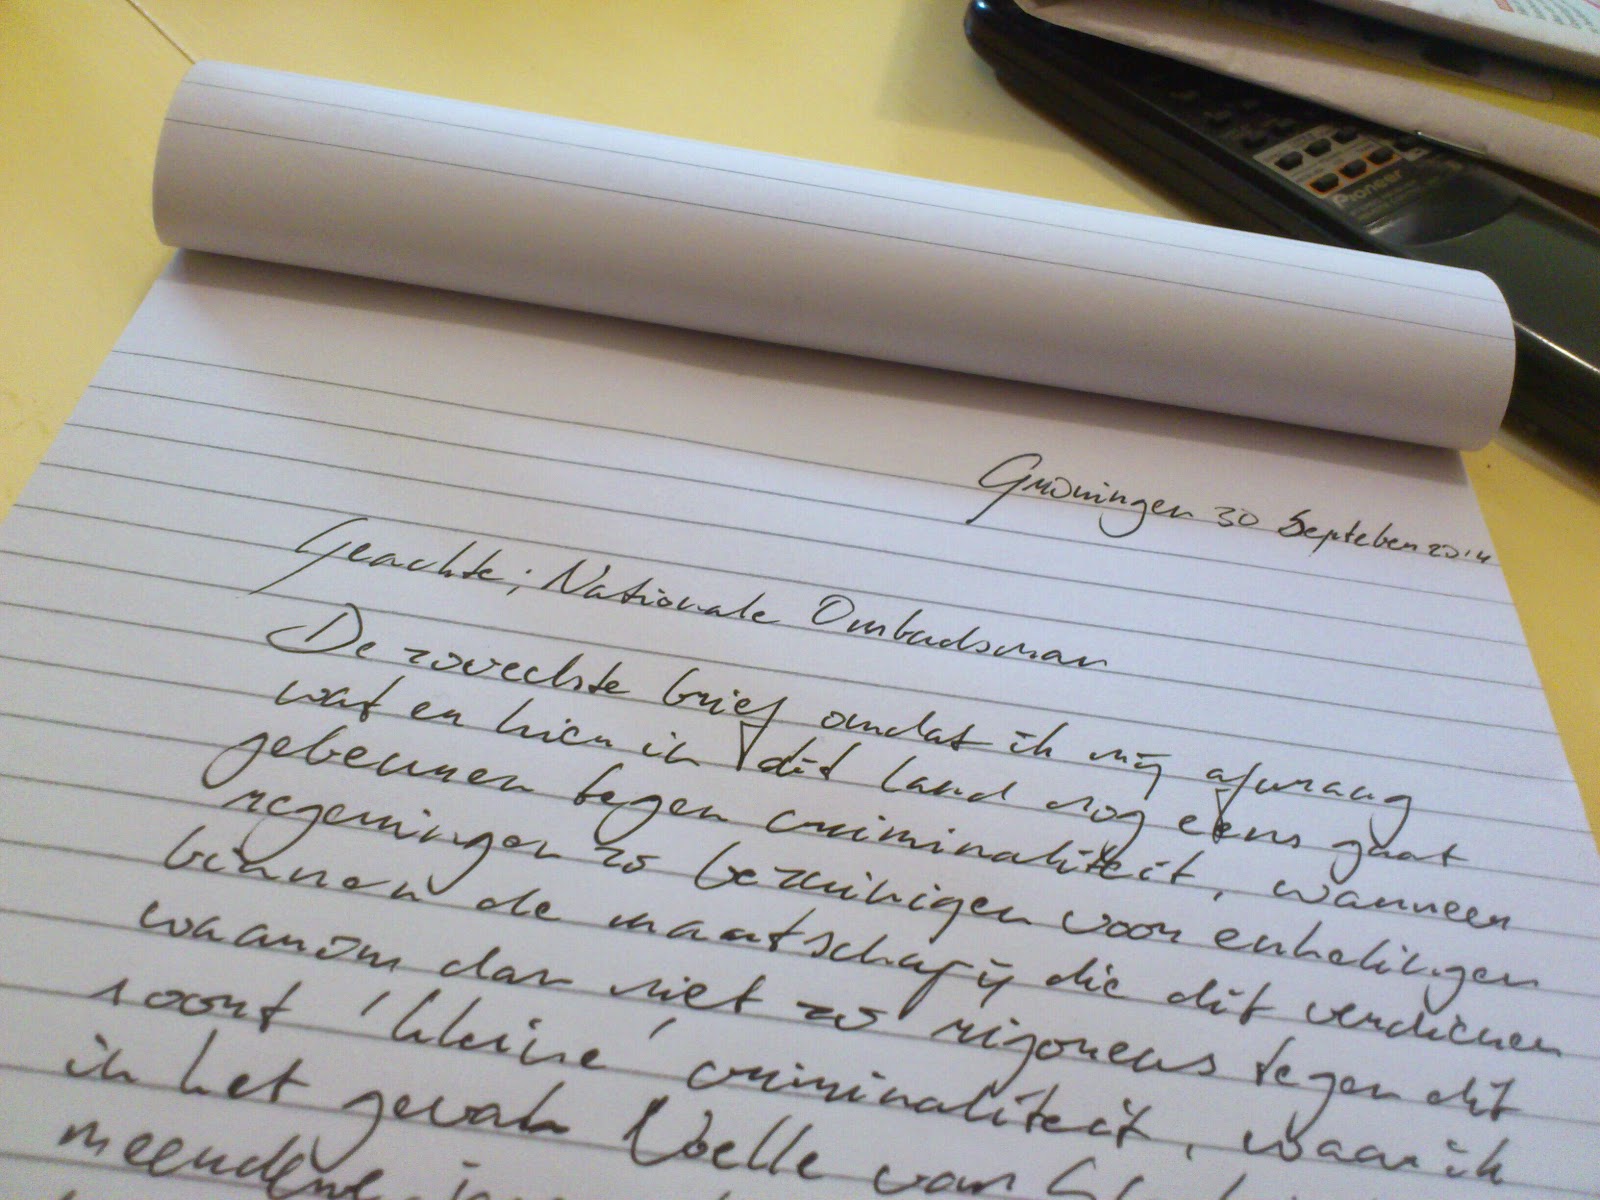 Pioneer
Groningen 30 Septeber 2014
Geachte; Nationale Ombudsman
De zoveelste brief omdat ik mij afvraag
wat en hier in dit land nog eens gaat
gebeuren tegen criminaliteit, wanneer
regeringen zo bezuinigen voor enkelingen
binnen de maatschapij die dit verdienen
waarom dan niet zo rigoreus tegen dit
soort 'kleine' criminaliteit, waar ik
in het geval Noelle van
meendene